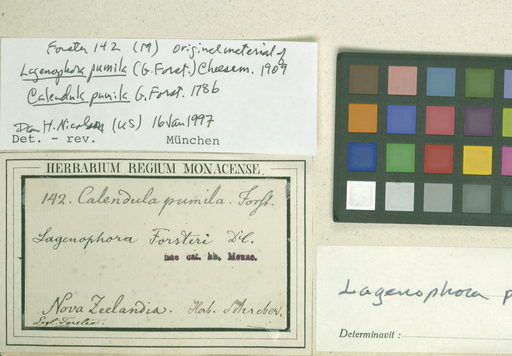 Forster 142 (M) Original material of
Lagenophora pumila (G. Forst.) Cheesem. 1909
Calendula pumila G. Forst. 1786
Dan H. Nicolson (US) 16 Jan 1997
Det. - rev. München
HERBARIUM REGIUM MONACENSE.
142. Calendula pumila. Forst.
Lagenophora Forsteri DC.
Nova Zeelandia. Herb. Schreber.
Legit. Forster.
Lagenophora p
Determinavit :